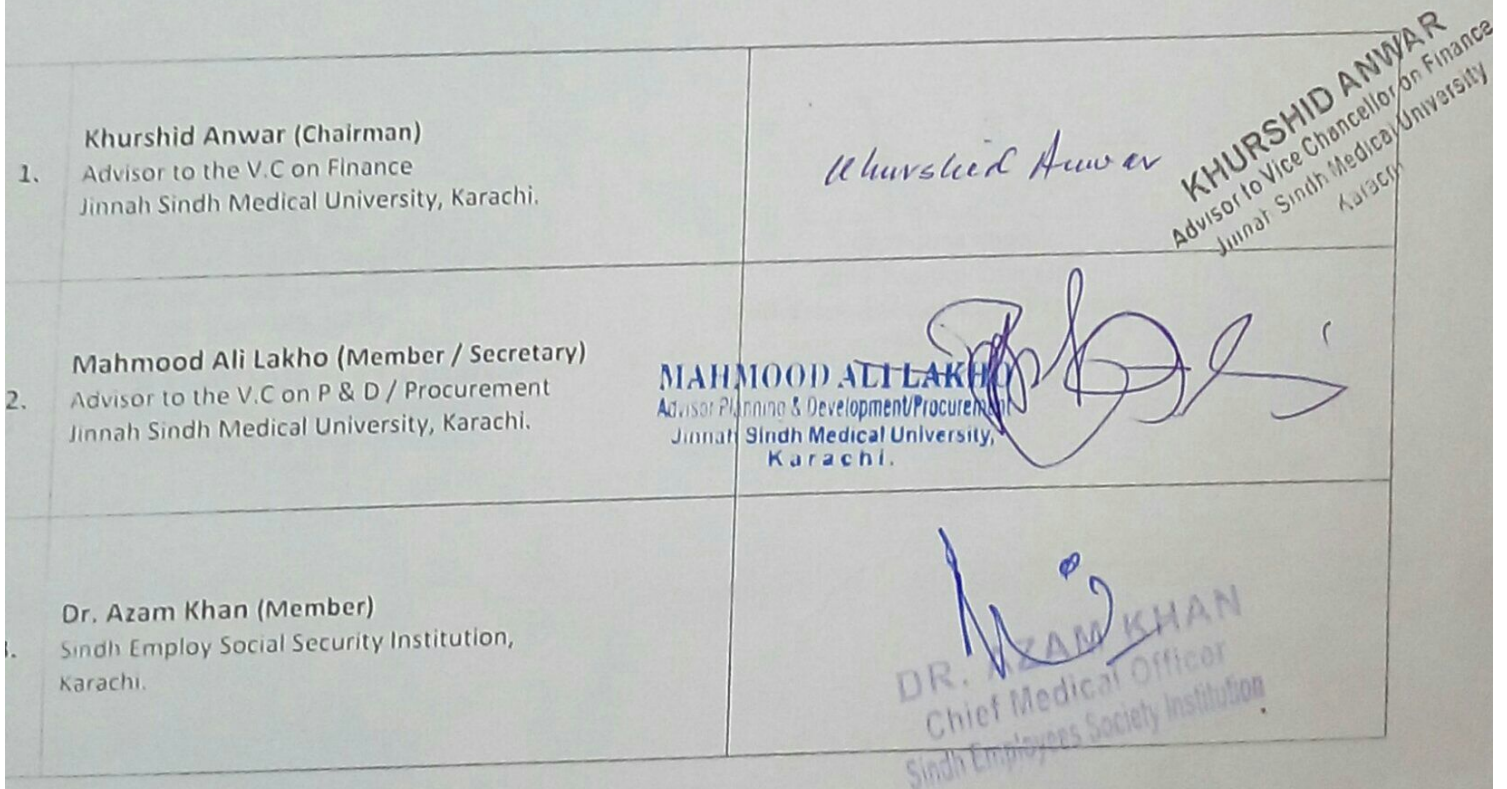 1.
Khurshid Anwar (Chairman)
Advisor to the V.C on Finance
Jinnah Sindh Medical University, Karachi.
Khurshid Anwar
KHURSHID ANWAR
Advisor to Vice Chancellor on Finance
Jinnah Sindh Medical University
Karachi
2.
Mahmood Ali Lakho (Member / Secretary)
Advisor to the V.C on P & D / Procurement
Jinnah Sindh Medical University, Karachi.
MAHMOOD ALI LAKHO
Advisor Planning & Development/Procurement
Jinnah Sindh Medical University,
Karachi.
Dr. Azam Khan (Member)
Sindh Employ Social Security Institution,
Karachi.
DR. AZAM KHAN
Chief Medical Officer
Sindh Employees Society Institution